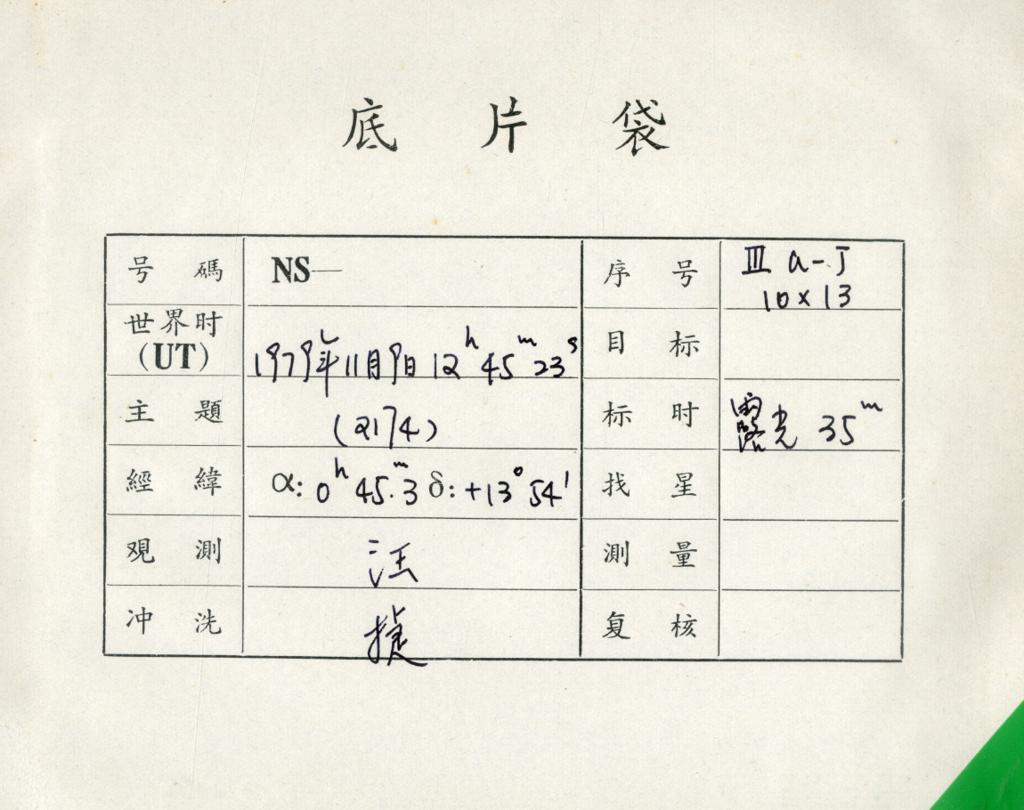 底片袋
号碼 NS— 序号 III a-J 10×13
世界时(UT) 1979年11月9日 12h 45m 23s 目标
主題 (2174) 标时 露光 35m
經緯 α: 0h 45m.3 δ: +13° 54' 找星
观測 汪 測量
冲洗 捷 复核